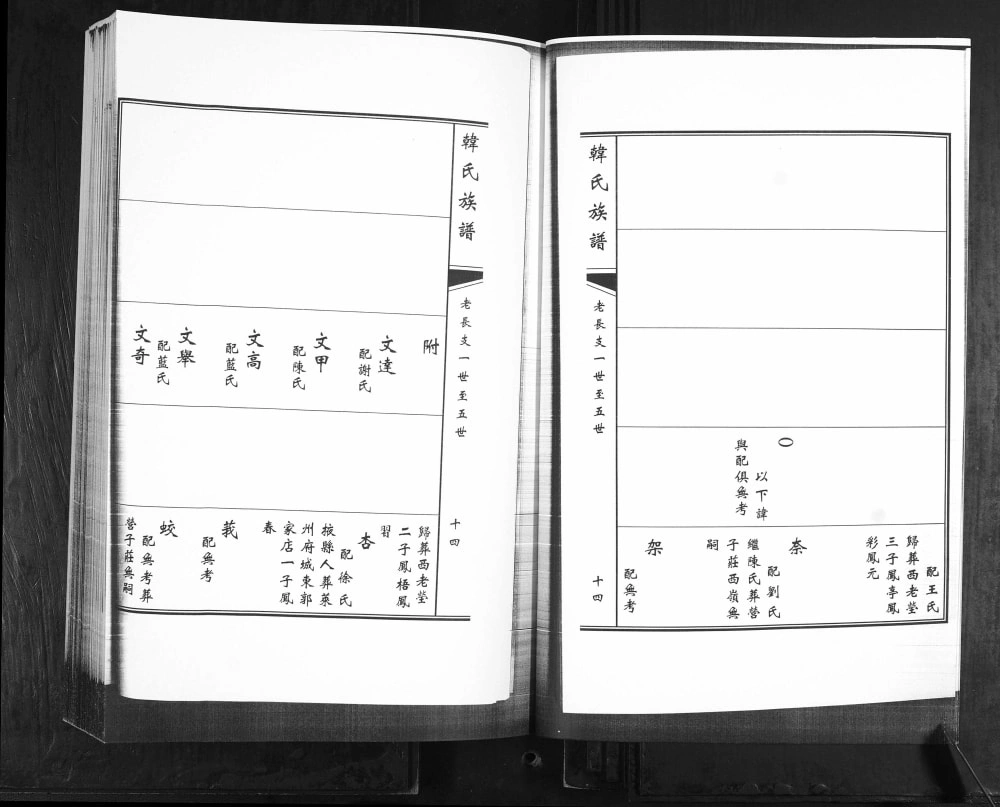 韓氏族譜
老長支一世至五世
十四
○
以下諱
與配俱無考
配王氏
歸葬西老塋
三子鳳亭鳳
彩鳳元
柰
配劉氏
繼陳氏葬營
子莊西嶺無
嗣
架
配無考
韓氏族譜
老長支一世至五世
十四
附
文達
配謝氏
文甲
配陳氏
文高
配藍氏
文舉
配藍氏
文奇
歸葬西老塋
二子鳳梧鳳
習
杏
配徐氏
掖縣人葬萊
州府城東郭
家店一子鳳
春
莪
配無考
蛟
配無考葬
營子莊無嗣